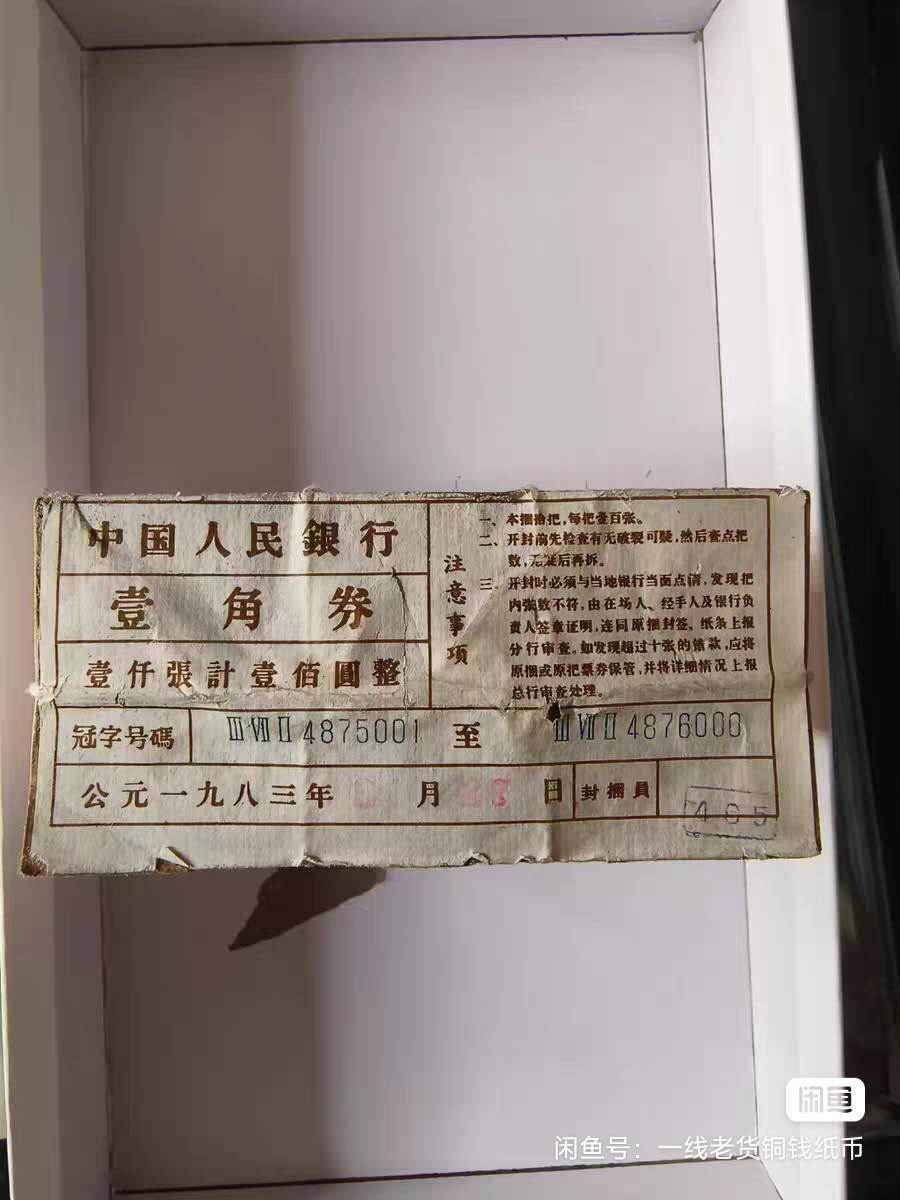 中国人民銀行
壹角券
壹仟張計壹佰圓整
注意事項
一、本捆拾把，每把壹百张。
二、开封前先检查有无破裂可疑，然后查点把
数，无疑后再拆。
三、开封时必须与当地银行当面点清，发现把
内张数不符，由在场人、经手人及银行负
责人签章证明，连同原捆封签、纸条上报
分行审查。如发现超过十张的错款，应将
原捆或原把票券保管，并将详细情况上报
总行审查处理。
冠字号碼 ⅢⅦⅡ4875001 至 ⅢⅦⅡ4876000
公元一九八三年 月 日 封捆員
465
闲鱼
闲鱼号：一线老货铜钱纸币